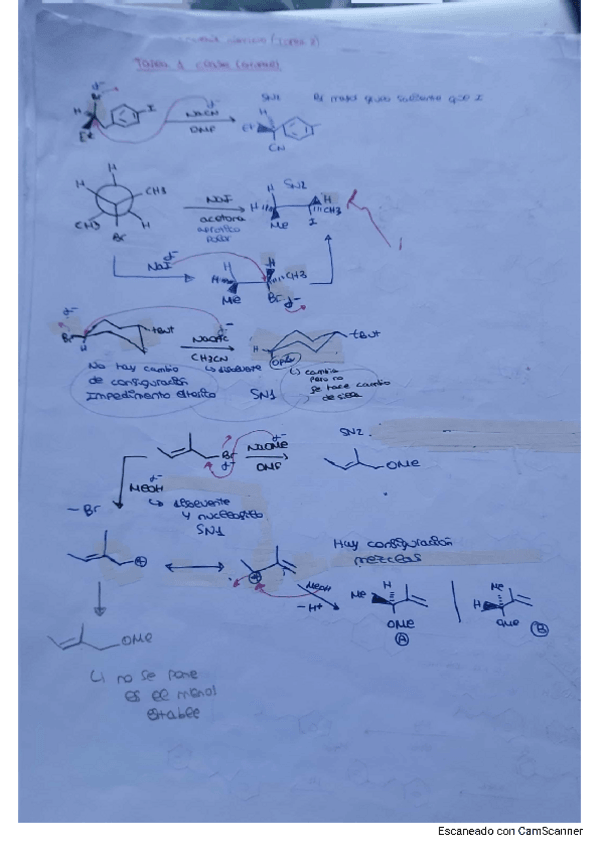 Tarea 1 clase
Br
H
Et
I
NaCN
DMF
SN2
Br mejor grupo saliente que I
H
Et
CN
I
H
H
CH3
CH3
H
Br
NaI
acetona
aprotico
polar
SN2
H
H
Me
H
CH3
I
NaI
H
H
Me
H
CH3
Br
Br
H
tBut
NaOAc
CH3CN
↳ disolvente
H
OAc
tBut
No hay cambio
de configuración
Impedimento estérico
SN1
↳ cambia
pero no
se hace cambio
de silla
Br
NaOMe
DMF
SN2.
OMe
MeOH
↳ disolvente
y nucleofilo
SN1
- Br
Hay configuración
mezclas
MeOH
- H+
Me
H
OMe
A
Me
H
OMe
B
OMe
↳ no se pone
es el menos
estable
Escaneado con CamScanner